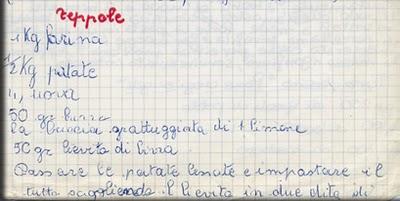 zeppole
1 Kg farina
1/2 Kg patate
4, uova
50 gr burro
la buccia grattuggiata di 1 limone
50 gr lievito di birra
Passare le patate lessate e impastare il
tutto sciogliendo il lievito in due dita di